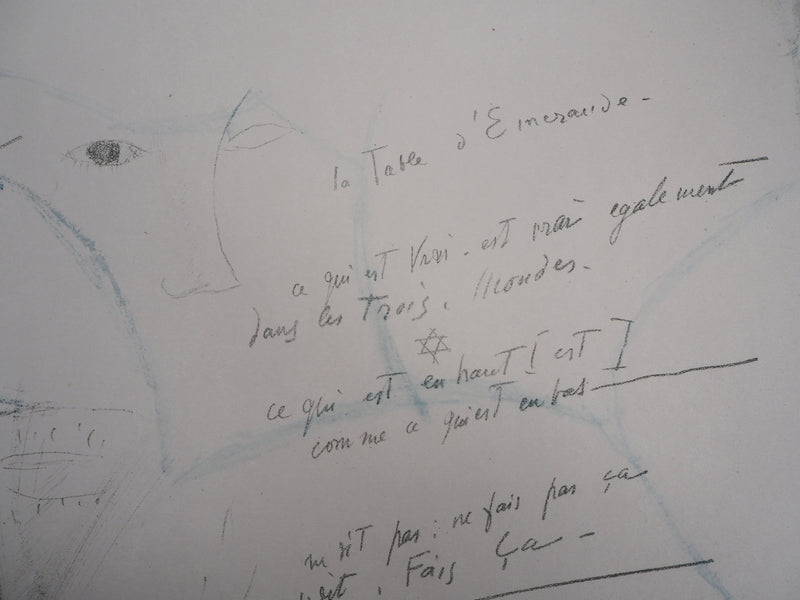 la Table d'Emeraude -
ce qui est Vrai - est vrai egalement
dans les Trois. Mondes.
ce qui est en haut [est]
comme ce qui est en bas
ne dit pas : ne fais pas ça
dit. Fais Ça -